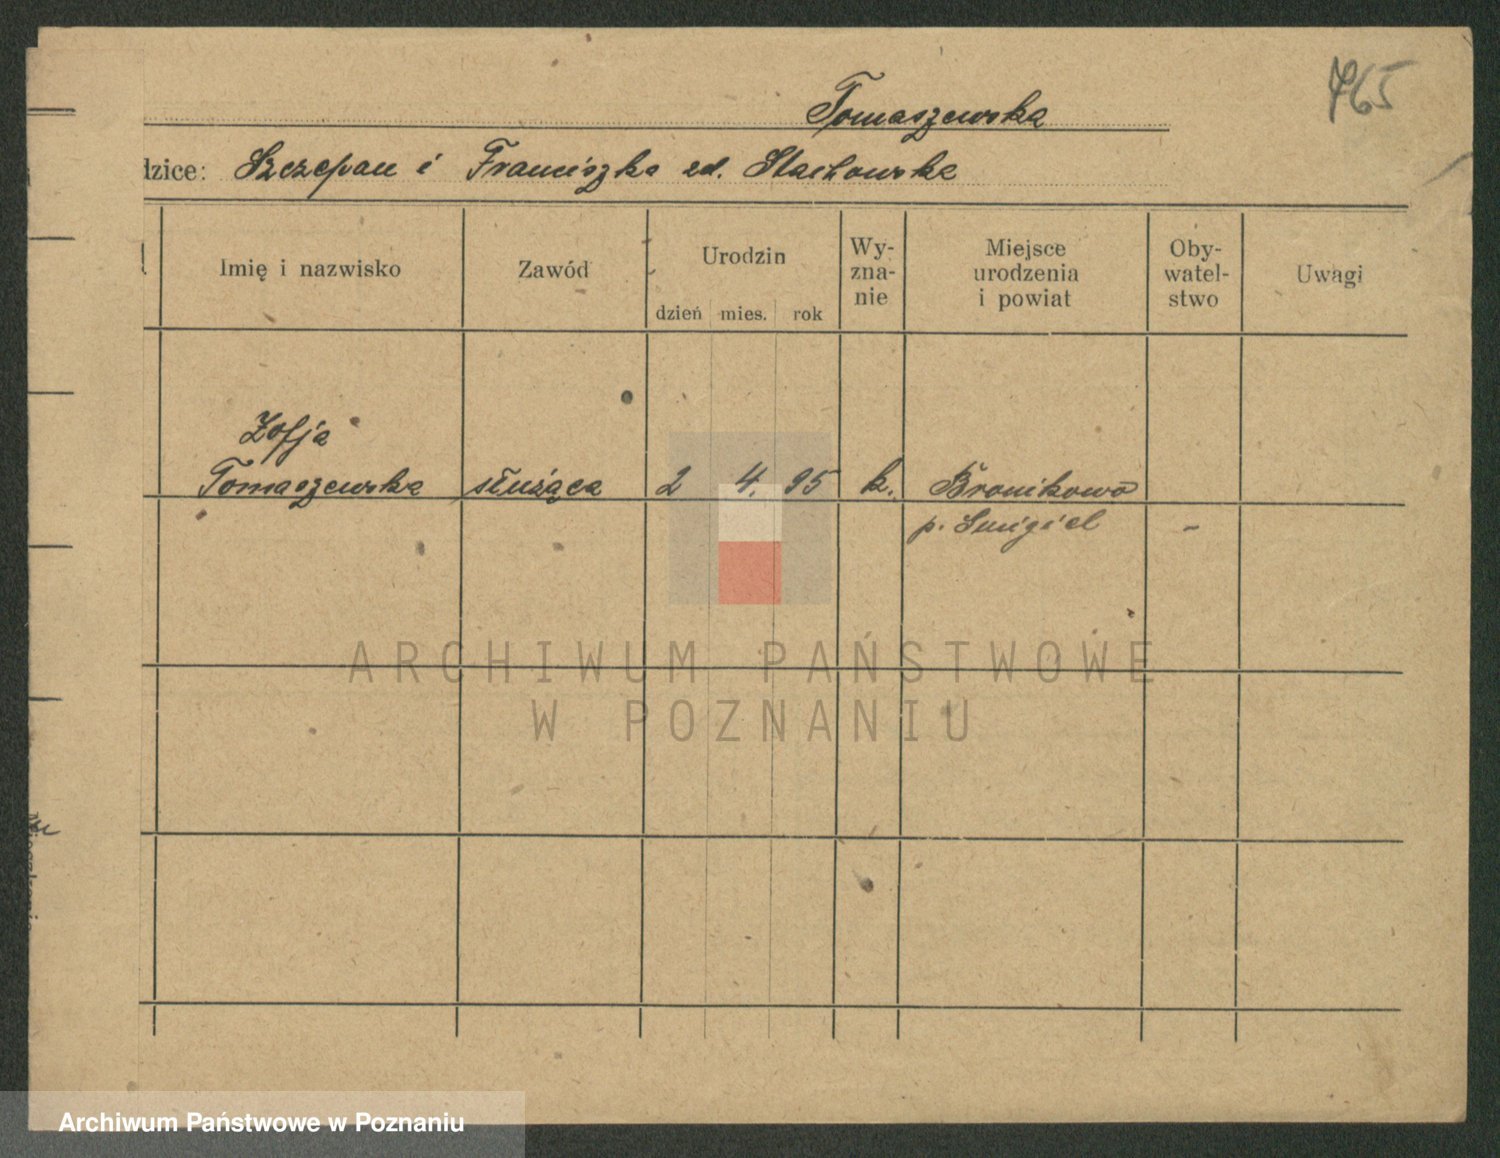 765
Tomaszewska
dzice: Szczepan i Franciszka zd. Stachowska
Imię i nazwisko
Zawód
Urodzin
dzień mies. rok
Wy-
zna-
nie
Miejsce
urodzenia
i powiat
Oby-
watel-
stwo
Uwagi
Zofja
Tomaszewska służąca 2 4. 95 k. Bronikowo
p. Śmigiel -
ARCHIWUM PAŃSTWOWE
W POZNANIU
Archiwum Państwowe w Poznaniu